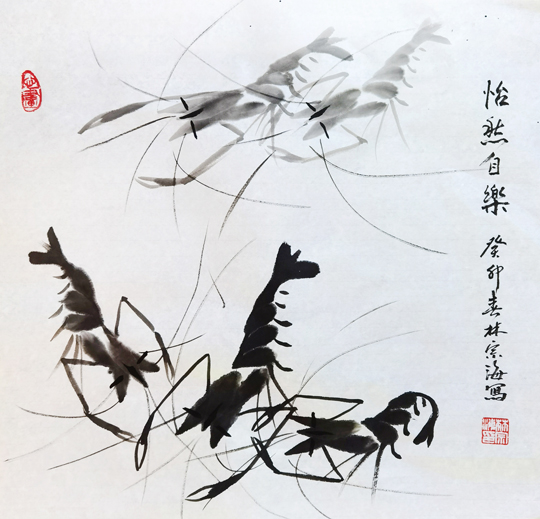 怡然自樂
癸卯春林宗海寫